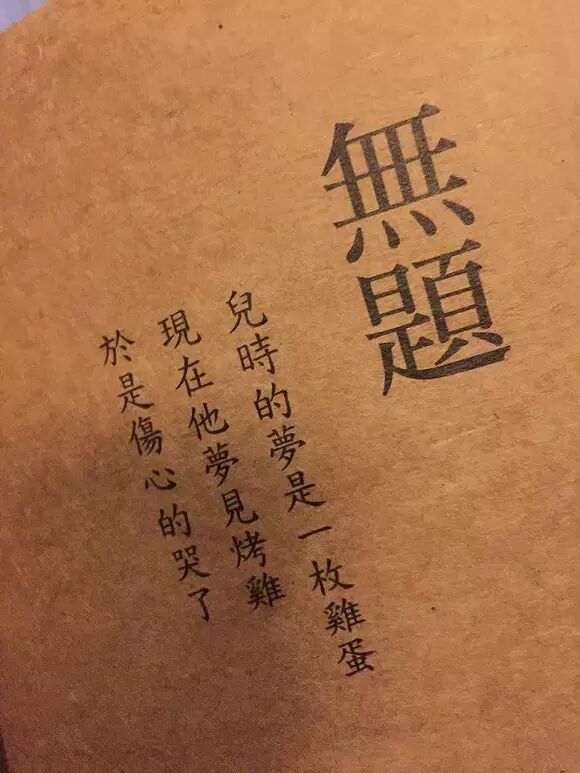 無題
兒時的夢是一枚雞蛋
現在他夢見烤雞
於是傷心的哭了